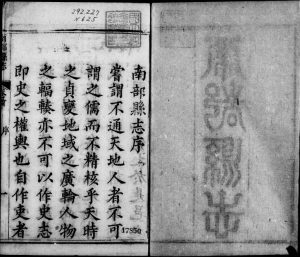 292.227
v.625
南部縣志序
嘗謂不通天地人者不可
謂之儒而不精核乎天時
之貞變地域之廣輪人物
之輻輳亦不可以作史志
即史之權輿也自作吏者
序
17850
南部縣志